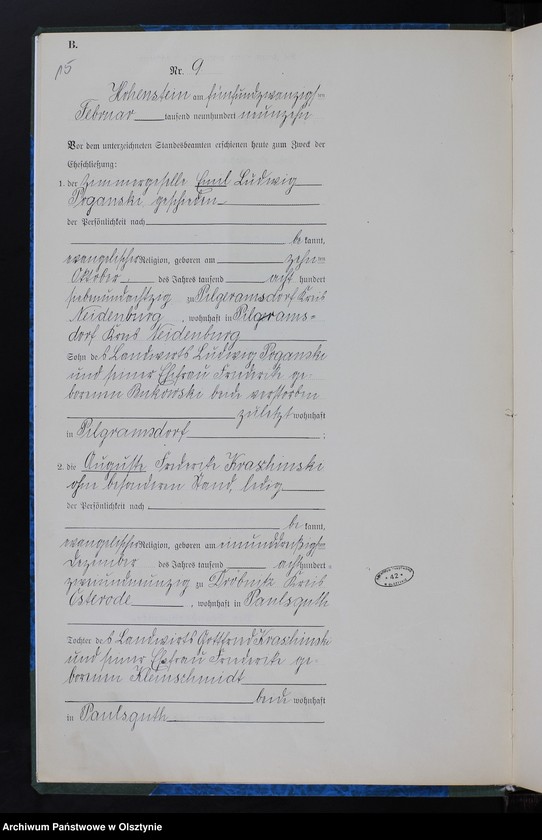 B.
15
Nr. 9
Hohenstein am fünfundzwanzigsten
Februar tausend neunhundert neunzehn
Vor dem unterzeichneten Standesbeamten erschienen heute zum Zweck der
Eheschließung:
1. der Zimmergeselle Emil Ludwig
Poganski, geschieden
der Persönlichkeit nach
be kannt,
evangelischer Religion, geboren am zehnten
Oktober des Jahres tausend acht hundert
siebenundachtzig zu Pilgramsdorf Kreis
Neidenburg, wohnhaft in Pilgrams-
dorf Kreis Neidenburg
Sohn des Landwirts Ludwig Poganski
und seiner Ehefrau Friederike ge-
borenen beide verstorben
zuletzt wohnhaft
in Pilgramsdorf;
2. die Auguste Friederike Kraschinski
ohne besonderen Stand, ledig
der Persönlichkeit nach
be kannt,
evangelischer Religion, geboren am einunddreißigsten
Dezember des Jahres tausend acht hundert
zweiundneunzig zu Dröbnitz Kreis
Osterode, wohnhaft in Paulsguth
Tochter des Landwirts Gottfried Kraschinski
und seiner Ehefrau Friederike ge-
borenen Kleinschmidt
beide wohnhaft
in Paulsguth
42
Archiwum Państwowe w Olsztynie